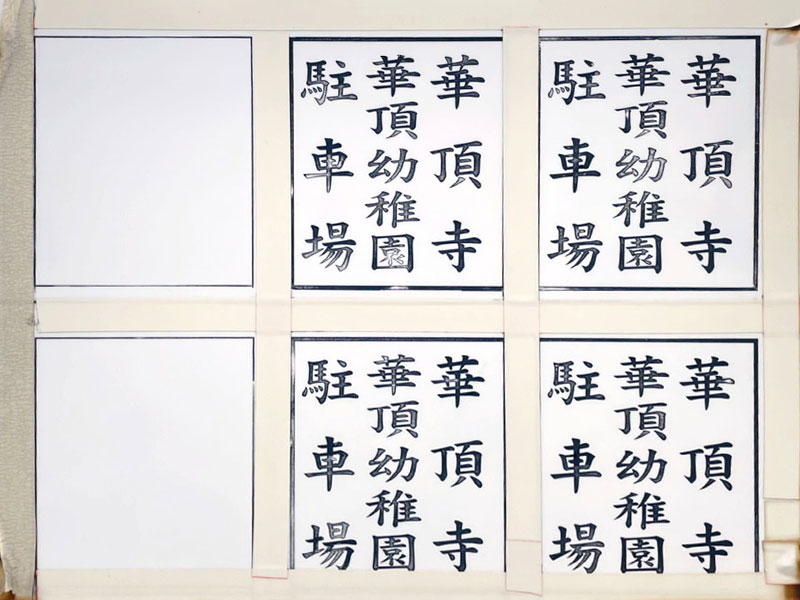 華頂寺
華頂幼稚園
駐車場
華頂寺
華頂幼稚園
駐車場
華頂寺
華頂幼稚園
駐車場
華頂寺
華頂幼稚園
駐車場